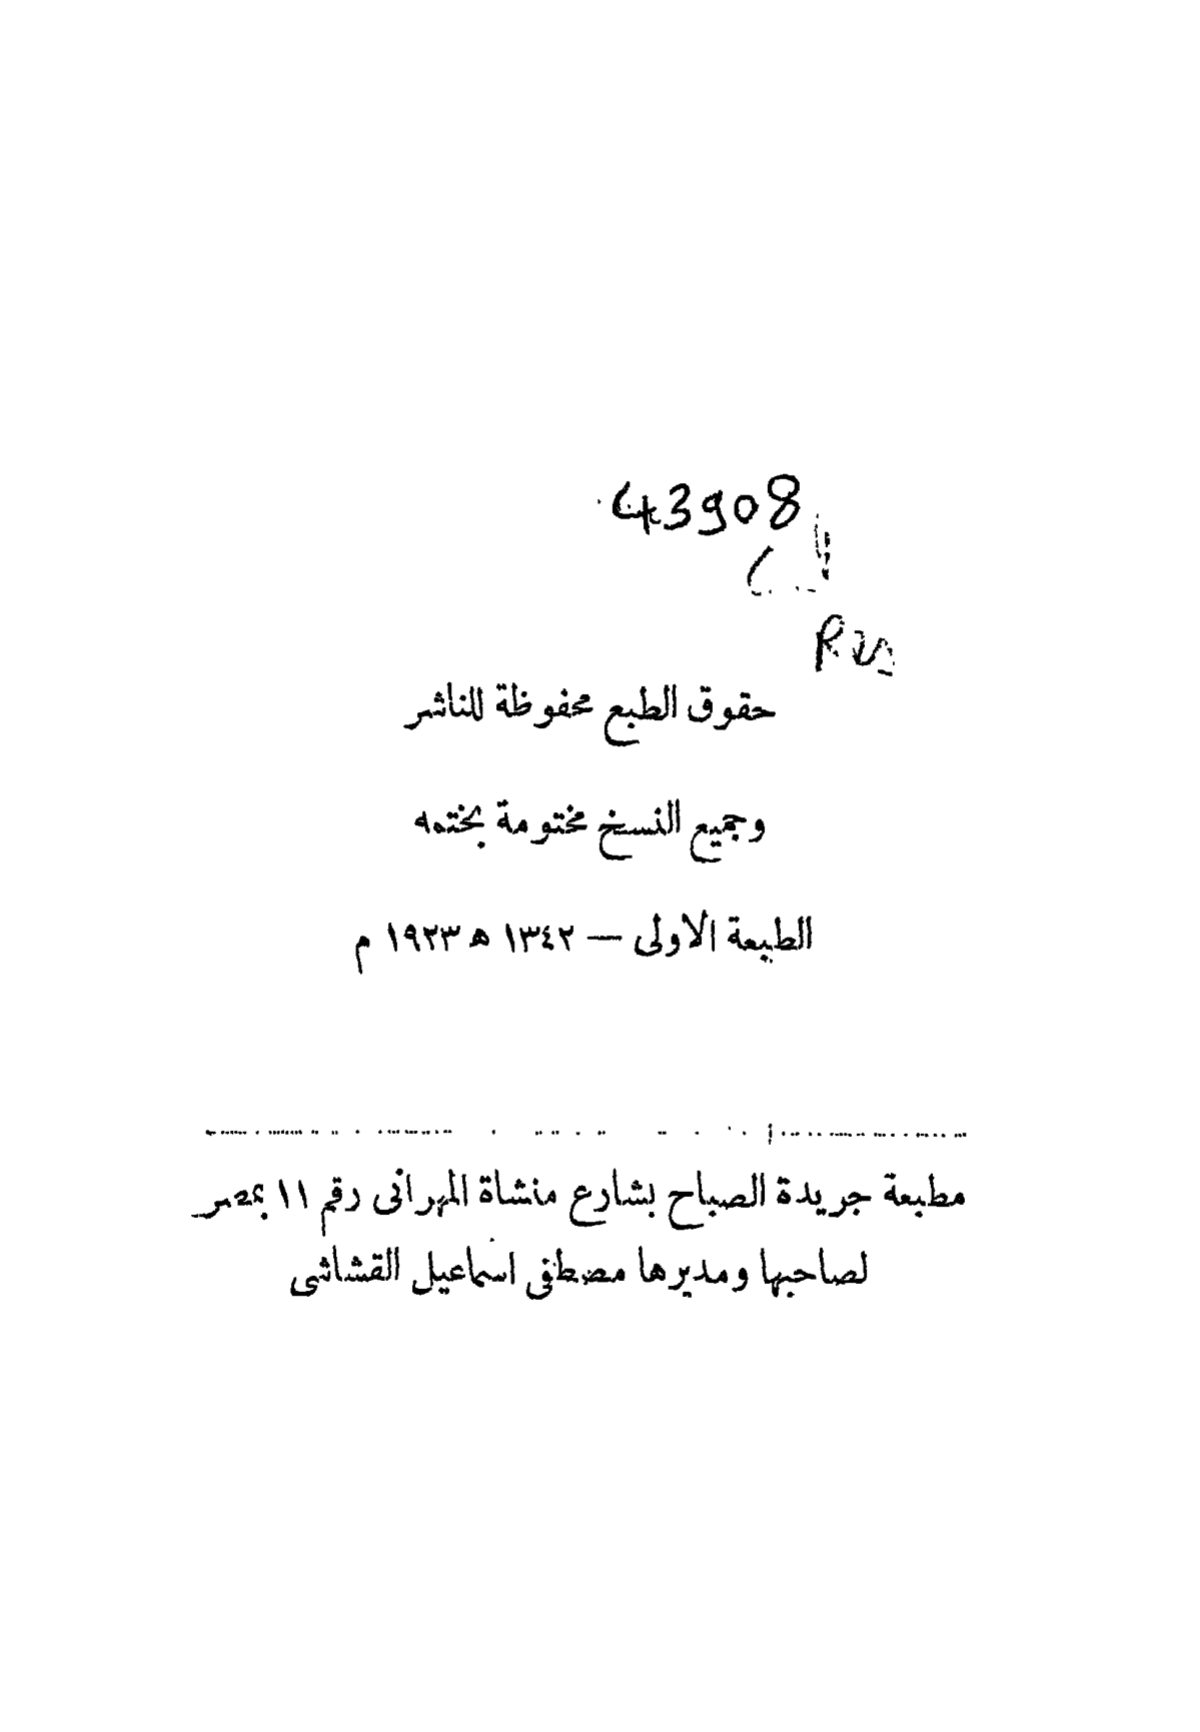 43908
حقوق الطبع محفوظة للناشر
وجميع النسخ مختومة بختمه
الطبعة الاولى — ١٣٤٢ ھ ١٩٢٣ م
مطبعة جريدة الصباح بشارع منشاة المهرانى رقم ١١ بمصر
لصاحبها ومديرها مصطفى اسماعيل القشاشى